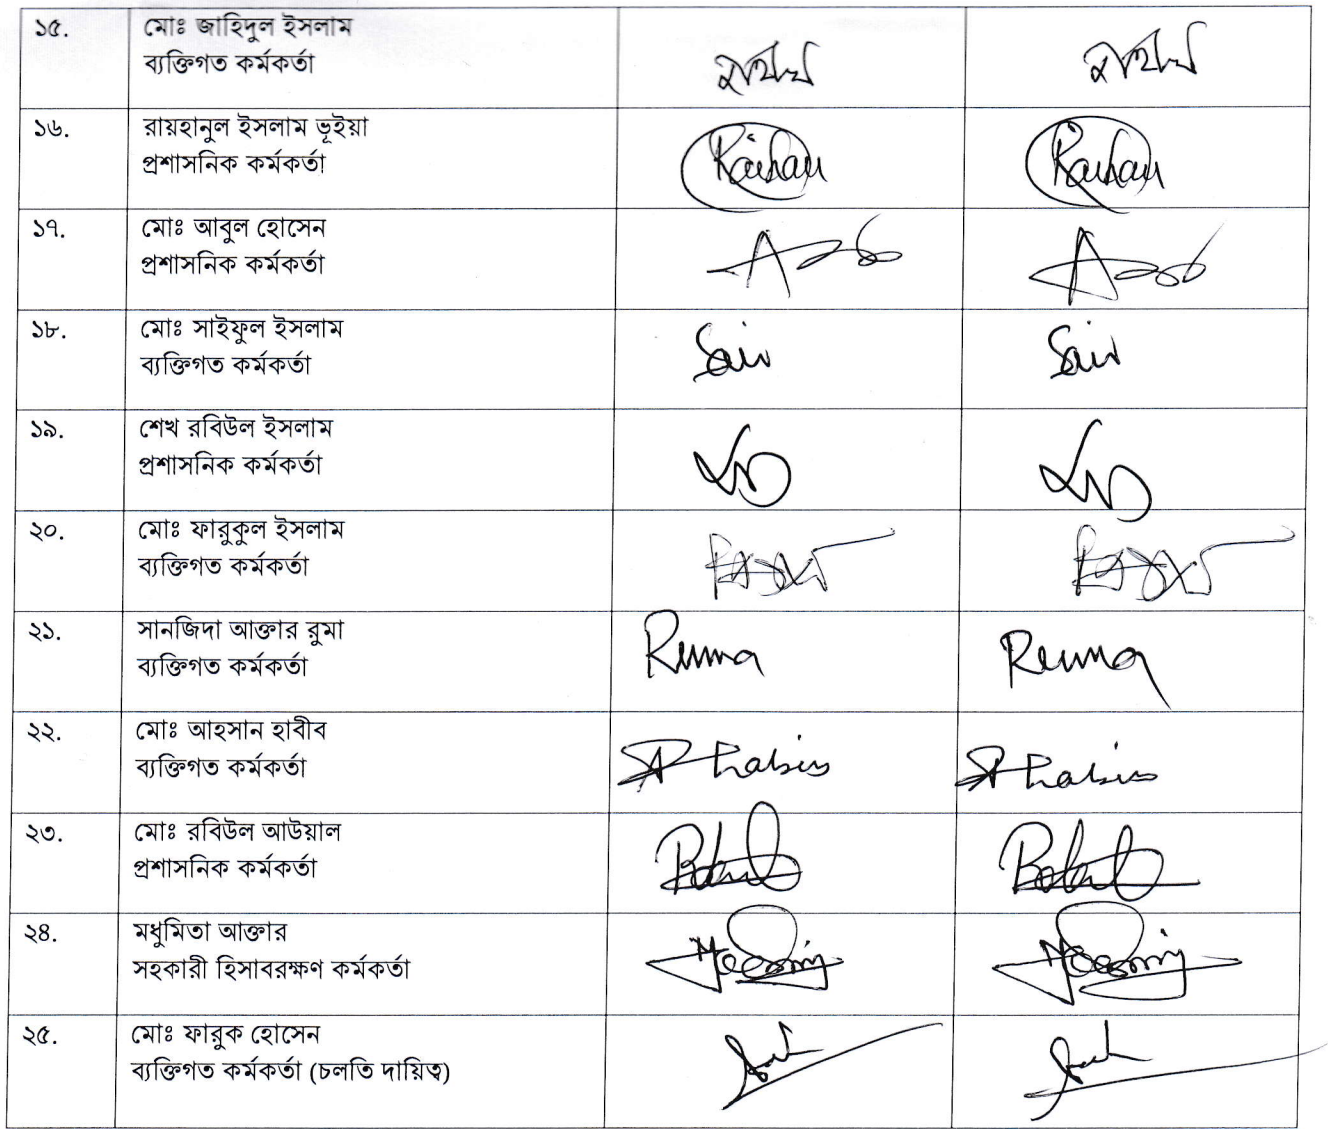 ১৫.
মোঃ জাহিদুল ইসলাম
ব্যক্তিগত কর্মকর্তা
১৬.
রায়হানুল ইসলাম ভূইয়া
প্রশাসনিক কর্মকর্তা
Raihan Raihan
১৭.
মোঃ আবুল হোসেন
প্রশাসনিক কর্মকর্তা
১৮.
মোঃ সাইফুল ইসলাম
ব্যক্তিগত কর্মকর্তা
১৯.
শেখ রবিউল ইসলাম
প্রশাসনিক কর্মকর্তা
২০.
মোঃ ফারুকুল ইসলাম
ব্যক্তিগত কর্মকর্তা
২১.
সানজিদা আক্তার রুমা
ব্যক্তিগত কর্মকর্তা
Ruma Ruma
২২.
মোঃ আহসান হাবীব
ব্যক্তিগত কর্মকর্তা
২৩.
মোঃ রবিউল আউয়াল
প্রশাসনিক কর্মকর্তা
২৪.
মধুমিতা আক্তার
সহকারী হিসাবরক্ষণ কর্মকর্তা
২৫.
মোঃ ফারুক হোসেন
ব্যক্তিগত কর্মকর্তা (চলতি দায়িত্ব)